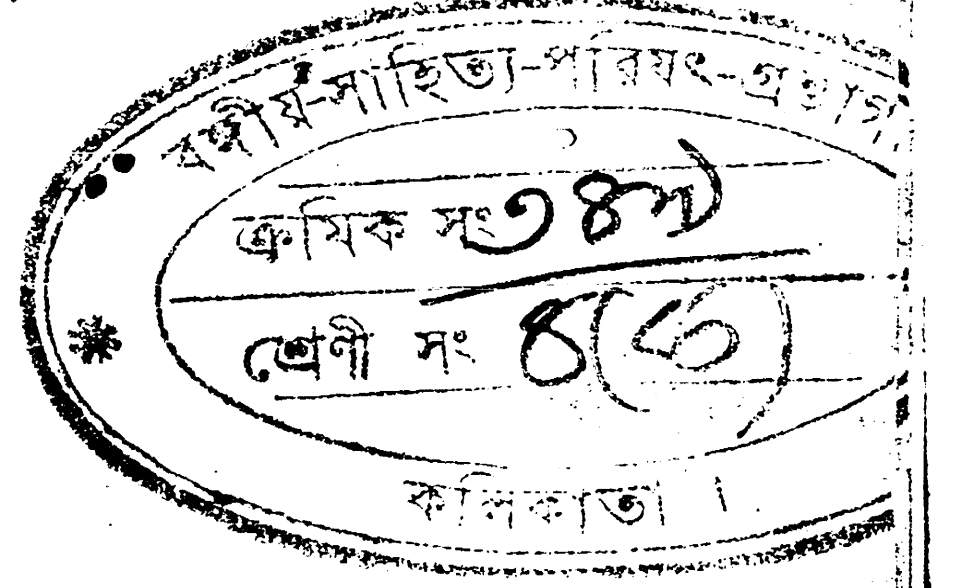 বঙ্গীয়-সাহিত্য-পরিষৎ-গ্রন্থাগার
ক্রমিক সং
শ্রেণী সং ৪(৬)
কলিকাতা।